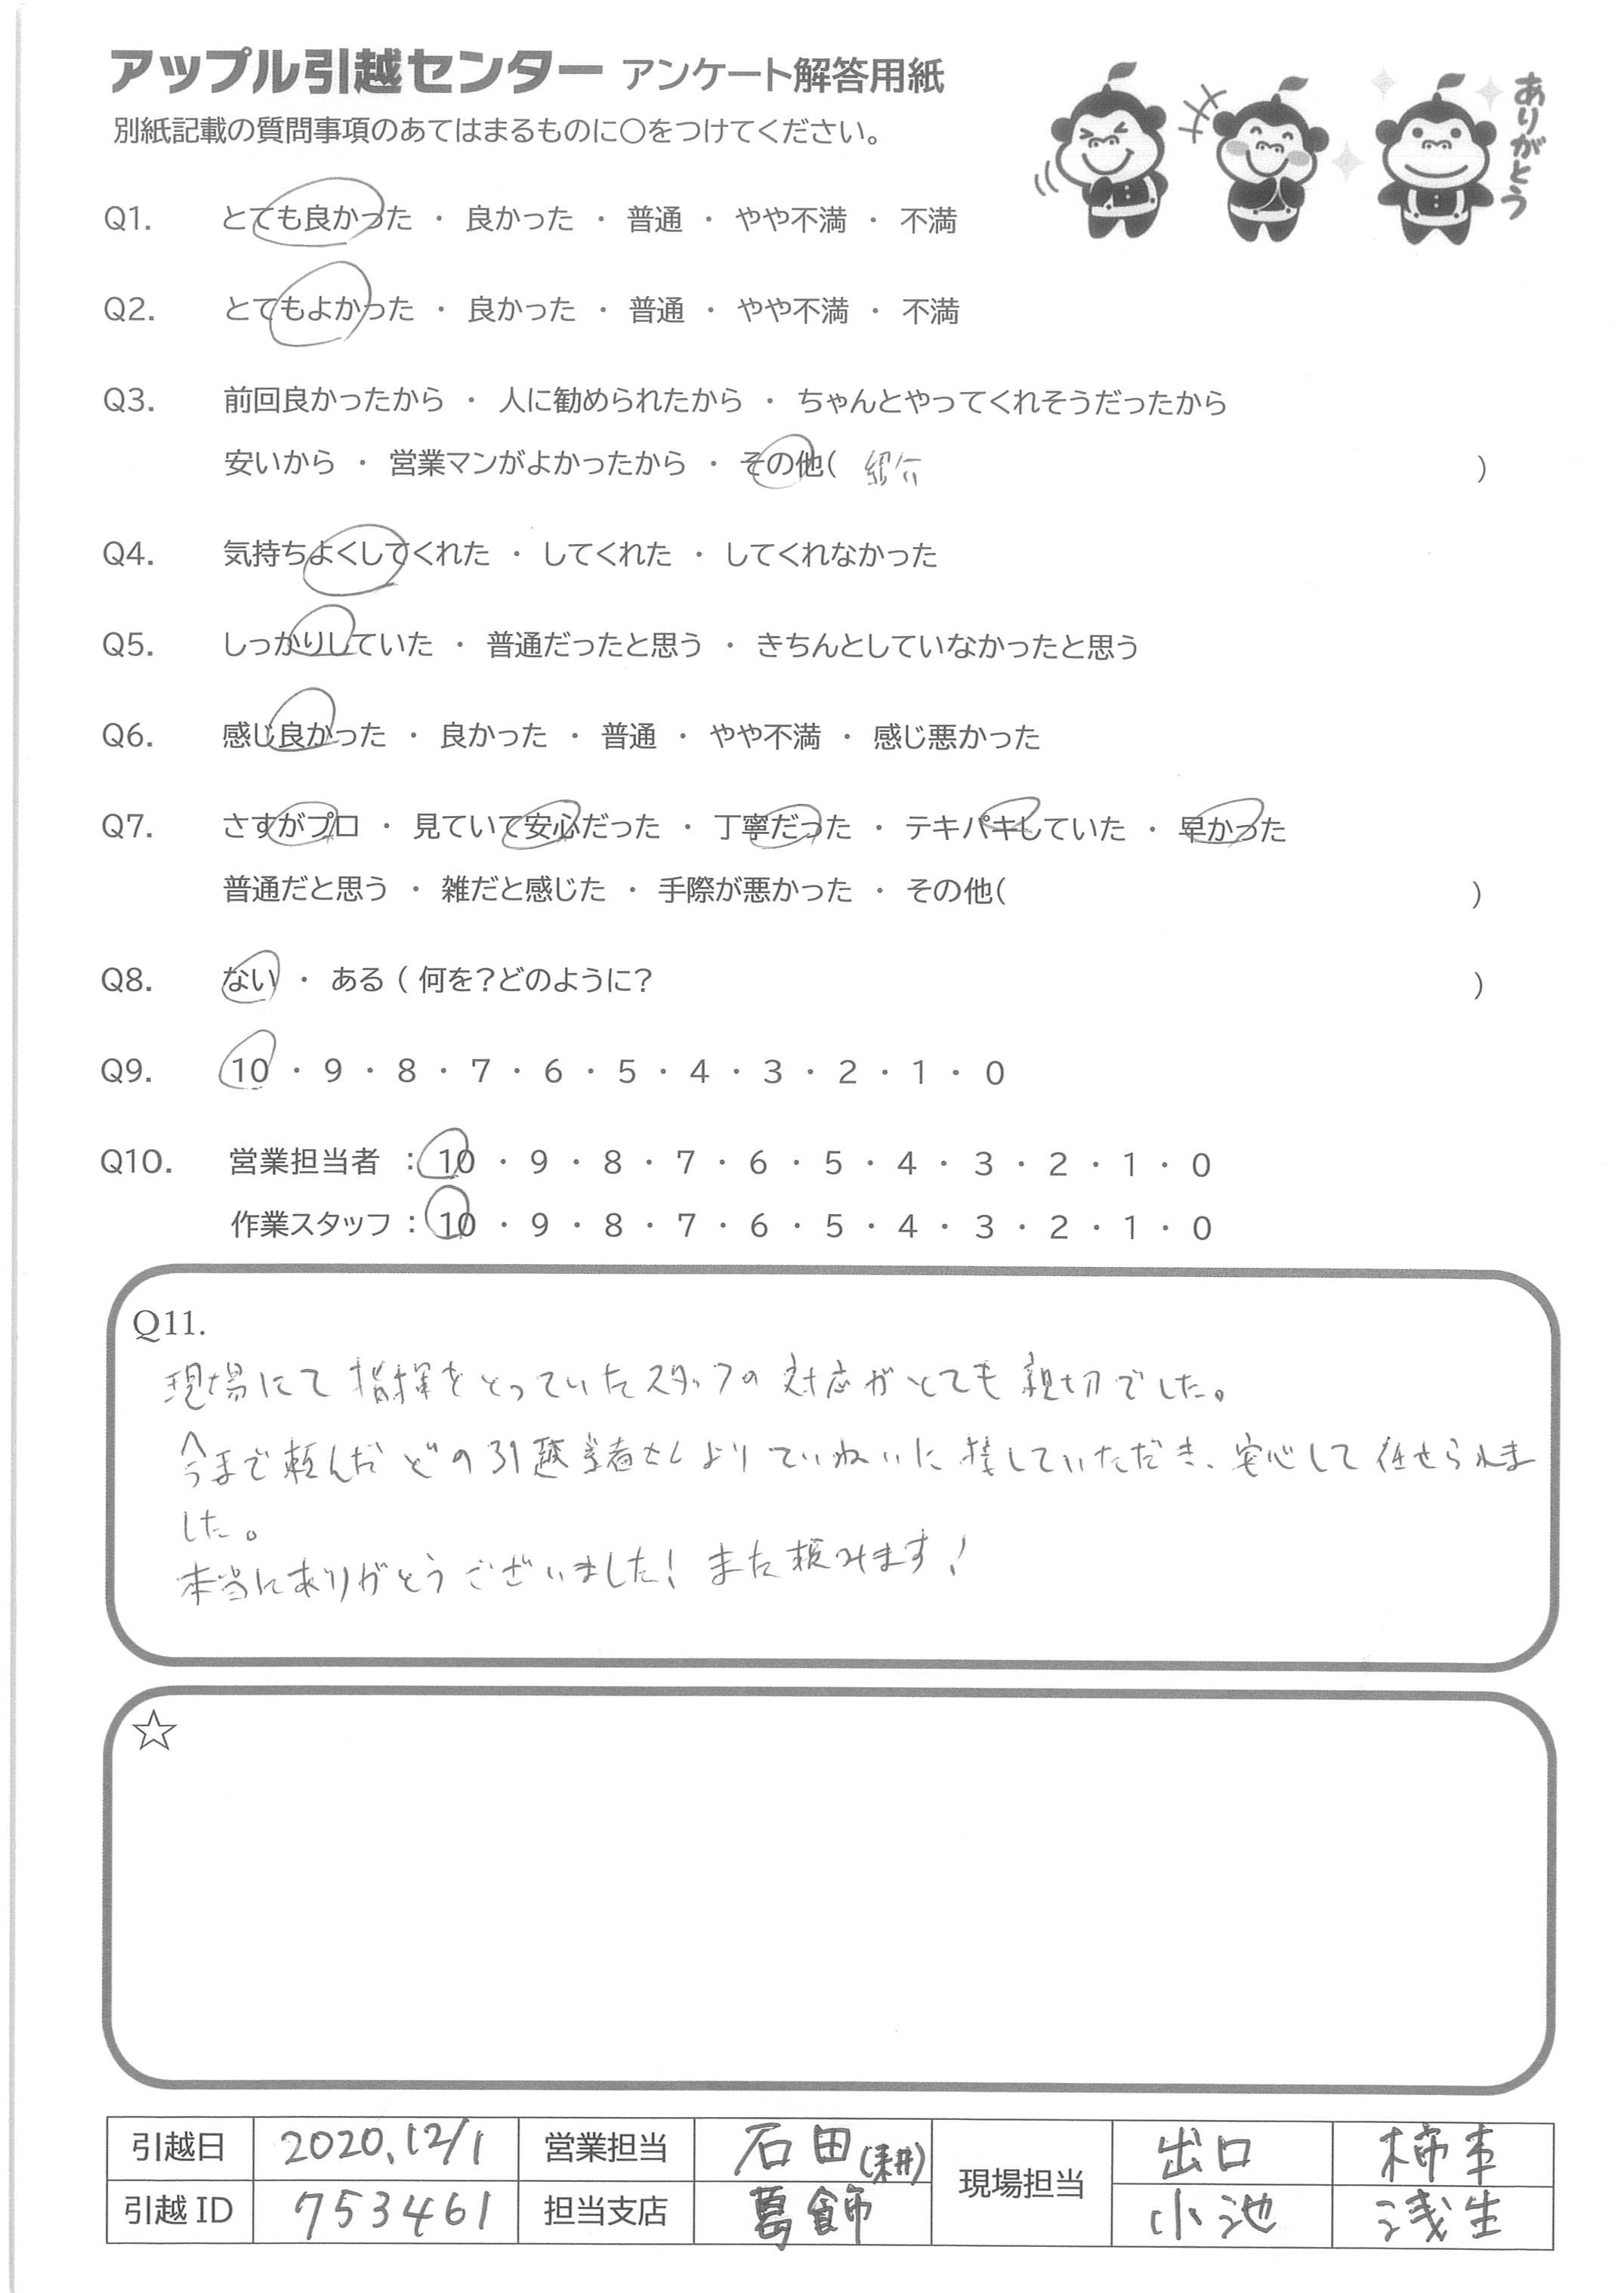 アップル引越センター アンケート解答用紙
別紙記載の質問事項のあてはまるものに○をつけてください。
ありがとう
Q1. とても良かった ・ 良かった ・ 普通 ・ やや不満 ・ 不満
Q2. とてもよかった ・ 良かった ・ 普通 ・ やや不満 ・ 不満
Q3. 前回良かったから ・ 人に勧められたから ・ ちゃんとやってくれそうだったから
安いから ・ 営業マンがよかったから ・ その他( 紹介 )
Q4. 気持ちよくしてくれた ・ してくれた ・ してくれなかった
Q5. しっかりしていた ・ 普通だったと思う ・ きちんとしていなかったと思う
Q6. 感じ良かった ・ 良かった ・ 普通 ・ やや不満 ・ 感じ悪かった
Q7. さすがプロ ・ 見ていて安心だった ・ 丁寧だった ・ テキパキしていた ・ 早かった
普通だと思う ・ 雑だと感じた ・ 手際が悪かった ・ その他( )
Q8. ない ・ ある ( 何を?どのように? )
Q9. 10 ・ 9 ・ 8 ・ 7 ・ 6 ・ 5 ・ 4 ・ 3 ・ 2 ・ 1 ・ 0
Q10. 営業担当者 : 10 ・ 9 ・ 8 ・ 7 ・ 6 ・ 5 ・ 4 ・ 3 ・ 2 ・ 1 ・ 0
作業スタッフ : 10 ・ 9 ・ 8 ・ 7 ・ 6 ・ 5 ・ 4 ・ 3 ・ 2 ・ 1 ・ 0
Q11.
現場にて指揮をとっていたスタッフの対応がとても親切でした。
今まで頼んだどの引越業者さんよりていねいに接していただき、安心して任せられま
した。
本当にありがとうございました! また頼みます!
☆
引越日 2020.12/1 営業担当 石田(耕) 現場担当 出口 柿本
引越ID 753461 担当支店 葛飾 小池 浅生